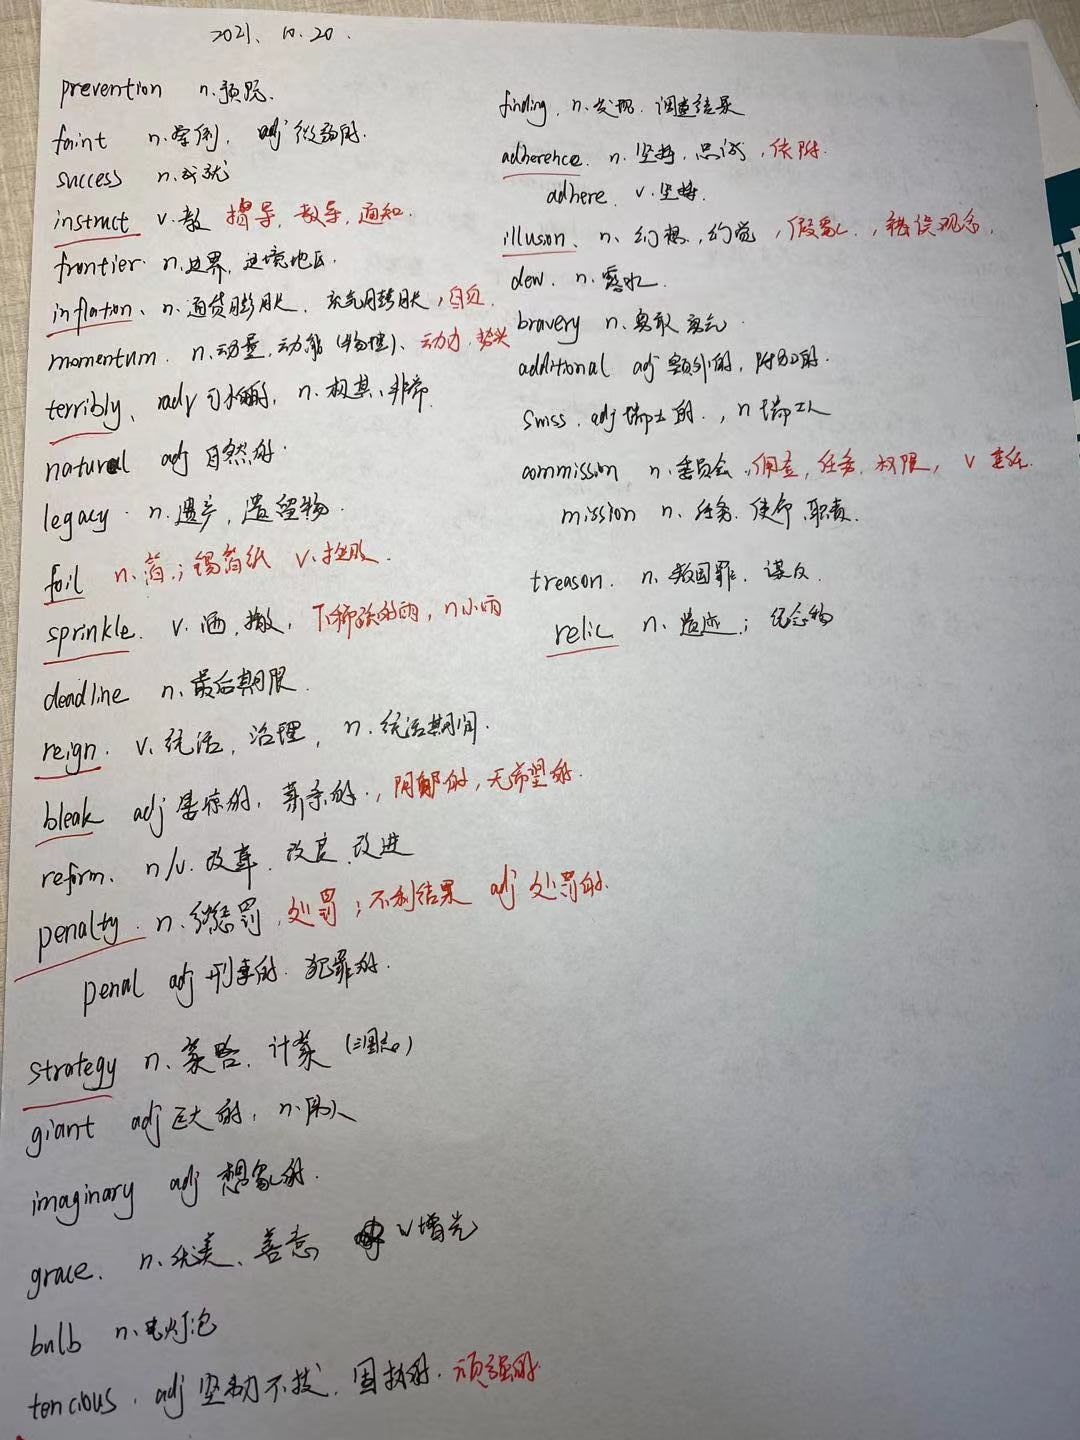 2021. 10.20.
prevention n.预防.
faint n.晕倒, adj 微弱的.
success n.成就
instruct v.教 指导, 教导, 通知.
frontier n.边界, 边境地区.
inflation、n.通货膨胀、充气膨胀,
momentum. n.动量,动能(物理)、动力,势头
terribly、adv 可怕的, n.极其、非常
natural adj 自然的.
legacy. n.遗产,遗留物.
foil n.箔;锡箔纸 v.挫败.
sprinkle. v.洒,撒, 下稀疏的雨, n小雨
deadline n.最后期限.
reign. v.统治,治理, n.统治期间.
bleak adj 荒凉的, 萧条的., 阴郁的, 无希望的.
reform、n/v.改革,改良,改进
penalty. n.惩罚,处罚;不利结果 adj 处罚的.
penal adj 刑事的. 犯罪的.
strategy n.策略. 计策 (三国志)
giant adj 巨大的, n.
imaginary adj 想象的.
grace. n.优美、善意, v增光
bulb n.电灯泡
tencious. adj 坚韧不拔、固执的. 顽强的.
finding. n.发现. 调查结果
adherence. n.坚持,忠诚,依附.
adhere v.坚持.
illuson、n、幻想,幻觉,假象,错误观念.
dew. n.露水.
bravery n.勇敢 勇气.
additional adj 额外的,附加的.
swiss. adj 瑞士的., n 瑞士人
commission n.委员会,佣金,任务,权限, v 委任.
mission n、任务. 使命.职责.
treason. n、叛国罪、谋反.
relic n.遗迹;纪念物